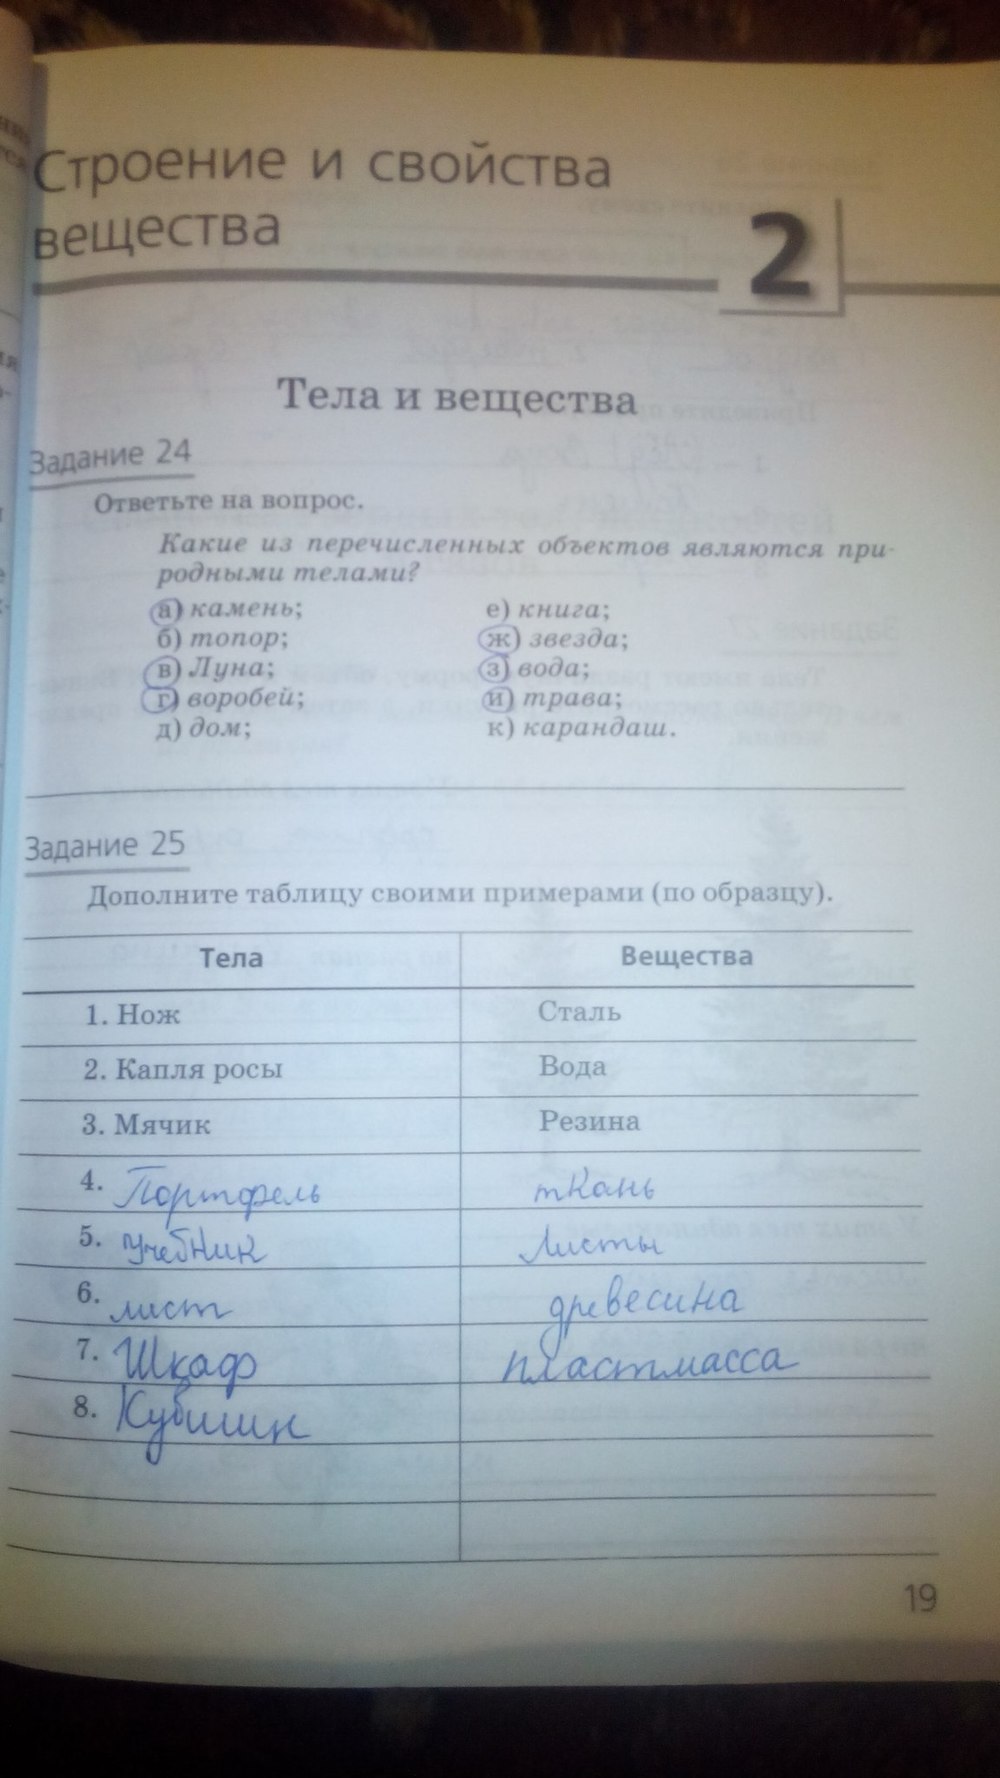 Строение и свойства
вещества
2
Тела и вещества
Задание 24
Ответьте на вопрос.
Какие из перечисленных объектов являются при-
родными телами?
а) камень; е) книга;
б) топор; ж) звезда;
в) Луна; з) вода;
г) воробей; и) трава;
д) дом; к) карандаш.
Задание 25
Дополните таблицу своими примерами (по образцу).
Тела Вещества
1. Нож Сталь
2. Капля росы Вода
3. Мячик Резина
4. Портфель ткань
5. Учебник Листы
6. лист древесина
7. Шкаф пластмасса
8. Кувшин
19